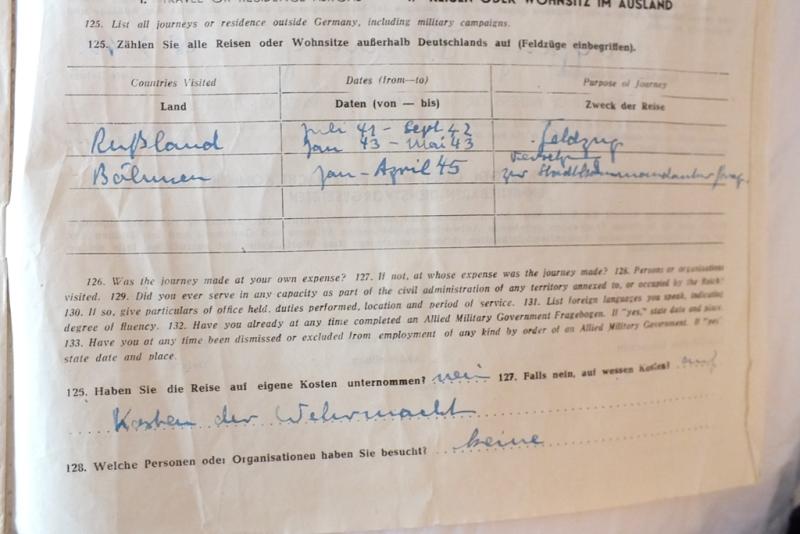 I. REISEN ODER WOHNSITZ IM AUSLAND
125. List all journeys or residence outside Germany, including military campaigns.
125. Zählen Sie alle Reisen oder Wohnsitze außerhalb Deutschlands auf (Feldzüge einbegriffen).
Countries Visited Dates (from—to) Purpose of Journey
Land Daten (von — bis) Zweck der Reise
Rußland Juli 41 - Sept 42 Feldzug
Jan 43 - Mai 43
Böhmen Jan - April 45 Versetzung
zur Stadtkommandantur Prag.
126. Was the journey made at your own expense? 127. If not, at whose expense was the journey made? 128. Persons or organisations
visited. 129. Did you ever serve in any capacity as part of the civil administration of any territory annexed to, or occupied by the Reich?
130. If so, give particulars of office held, duties performed, location and period of service. 131. List foreign languages you speak, indicating
degree of fluency. 132. Have you already at any time completed an Allied Military Government Fragebogen. If "yes," state date and place.
133. Have you at any time been dismissed or excluded from employment of any kind by order of an Allied Military Government. If "yes"
state date and place.
125. Haben Sie die Reise auf eigene Kosten unternommen? nein 127. Falls nein, auf wessen Kosten? auf
Kosten der Wehrmacht
128. Welche Personen oder Organisationen haben Sie besucht? keine